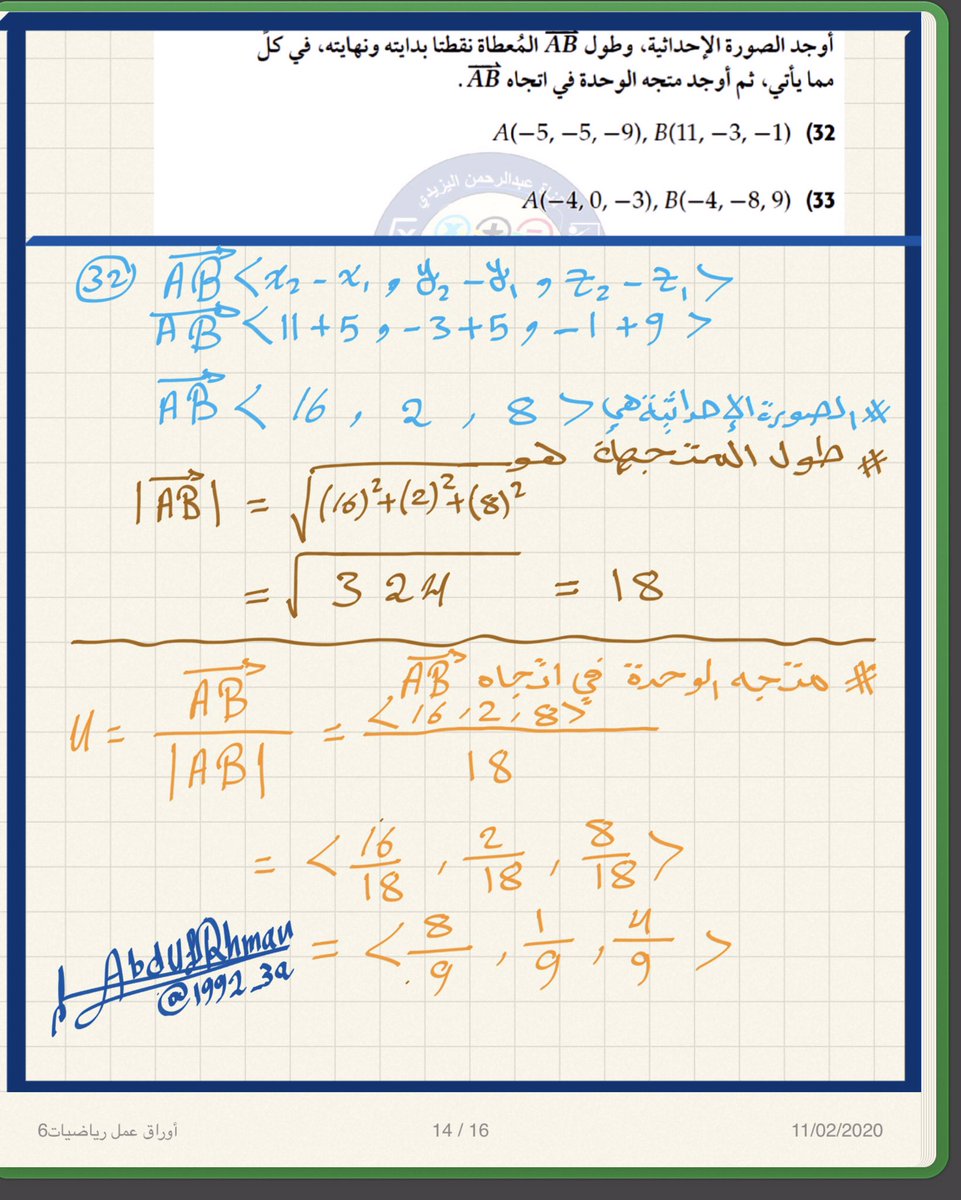 أوجد الصورة الإحداثية، وطول AB المُعطاة نقطتا بدايته ونهايته، في كلّ
مما يأتي، ثم أوجد متجه الوحدة في اتجاه AB .
A(−5, −5, −9), B(11, −3, −1) (32
عبدالرحمن اليزيدي
A(−4, 0, −3), B(−4, −8, 9) (33
32 AB <x₂ − x₁ , y₂ − y₁ , z₂ − z₁>
AB <11+5 , −3+5 , −1+9>
AB < 16 , 2 , 8 > الصورة الإحداثية هي #
# طول المتجهة هو
|AB| = √(16)²+(2)²+(8)²
= √324 = 18
# متجه الوحدة في اتجاه AB
u = AB / |AB| = <16, 2, 8> / 18
= < 16/18 , 2/18 , 8/18 >
= < 8/9 , 1/9 , 4/9 >
@1992_3a
أوراق عمل رياضيات6
14 / 16
11/02/2020